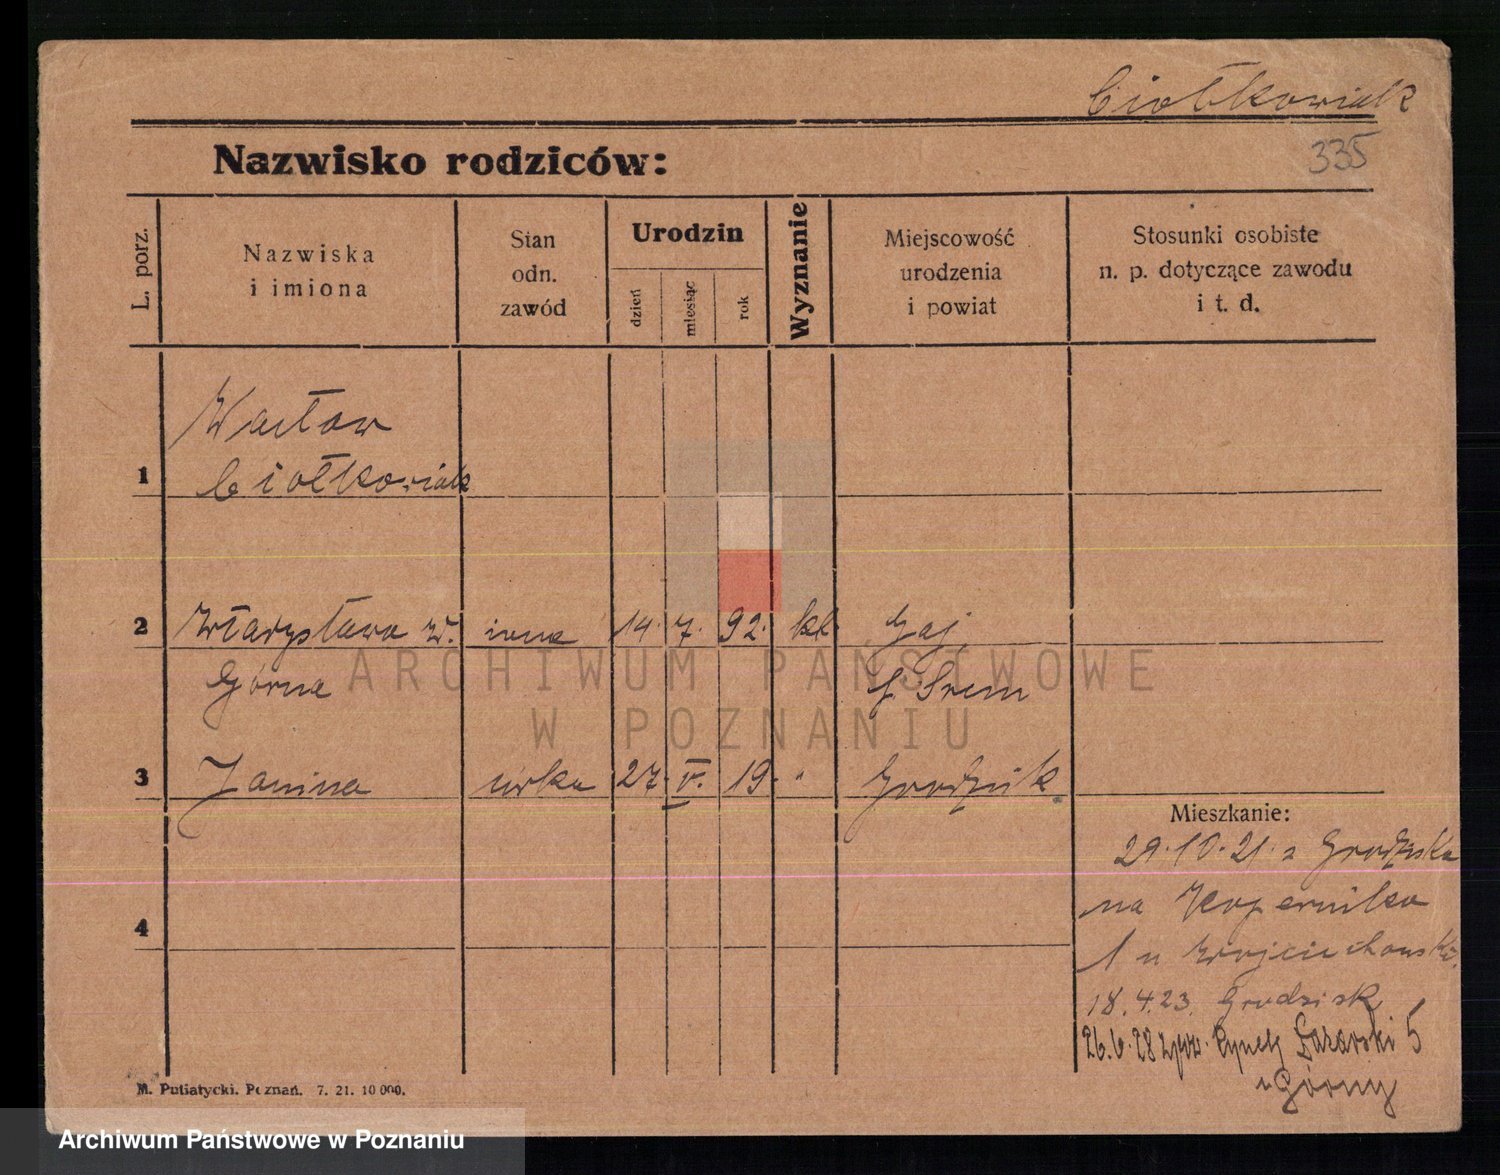 Ciołkowiak
335
Nazwisko rodziców:
L. porz.
Nazwiska
i imiona
Stan
odn.
zawód
Urodzin
dzień
miesiąc
rok
Wyznanie
Miejscowość
urodzenia
i powiat
Stosunki osobiste
n. p. dotyczące zawodu
i t. d.
Wacław
1 Ciołkowiak
2 Władysława z. żona 14. 7. 92. kat. Gaj
Górna p. Śrem
3 Janina córka 27. V. 19. " Grodzisk
Mieszkanie:
29.10.21. z Grodziska
na Kopernika
4
1 u Wojciechowski
18.4.23. Grodzisk
26.6.28 Rynek Łazarski 5
u Górny
M. Putiatycki. Poznań. 7. 21. 10 000.
ARCHIWUM PAŃSTWOWE
W POZNANIU
Archiwum Państwowe w Poznaniu